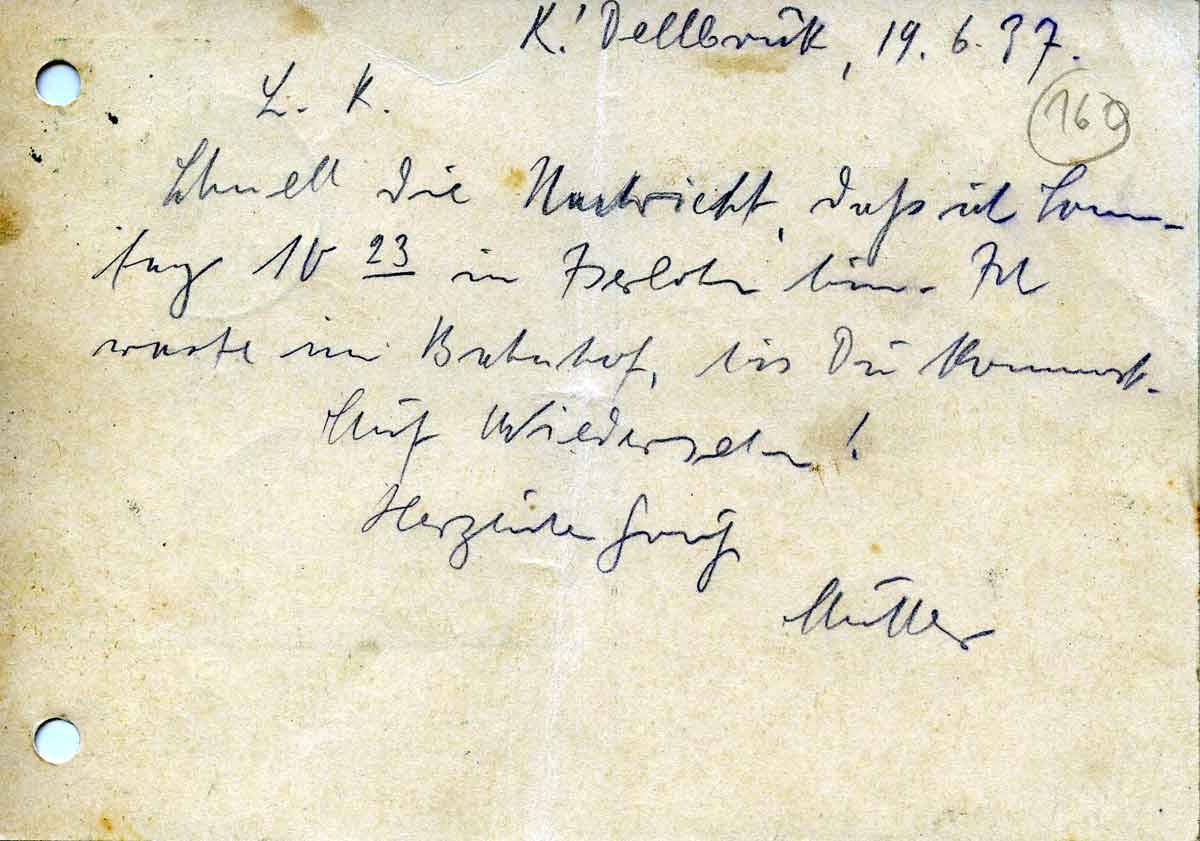 K. Dellbrück, 19.6.37.
160
L. K.
Schnell die Nachricht, daß ich Sonn-
tag 10 23 in Iserlohn bin. Ich
warte im Bahnhof, bis Du kommst.
Auf Wiedersehn!
Herzlichen Gruß
Mutter